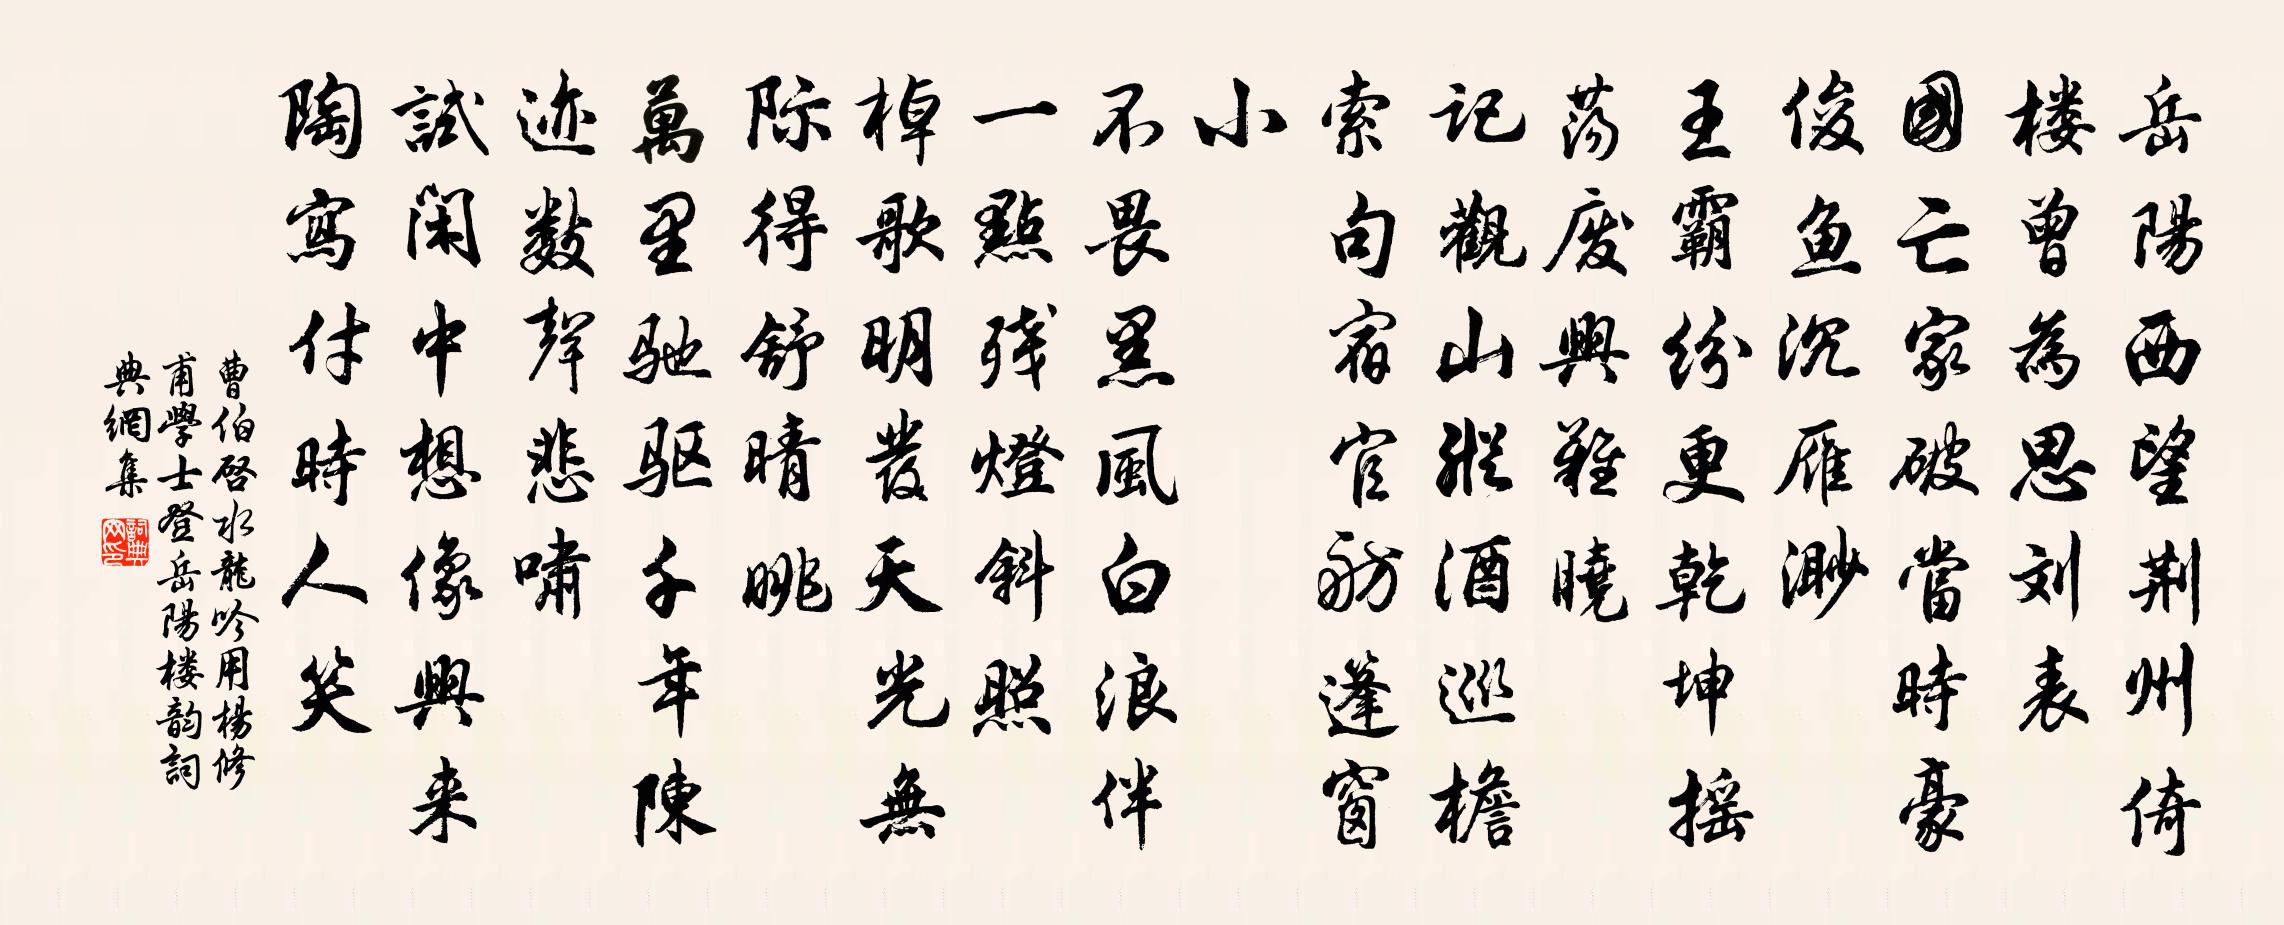 岳陽西望荆州倚
楼曾為思刘表
國亡家破當時豪
俊魚沉雁渺
王霸紛更乾坤摇
荡废興難曉
記觀山縱酒巡檐
索句宿官舫蓬窗
小
不畏黑風白浪伴
一點残燈斜照
棹歌明發天光無
际得舒晴眺
萬里驰驱千年陳
迹数聲悲嘯
試閑中想像興来
陶寫付時人笑
曹伯啓水龍吟用楊修
甫學士登岳陽楼韵詞
典網集
詞典
网印